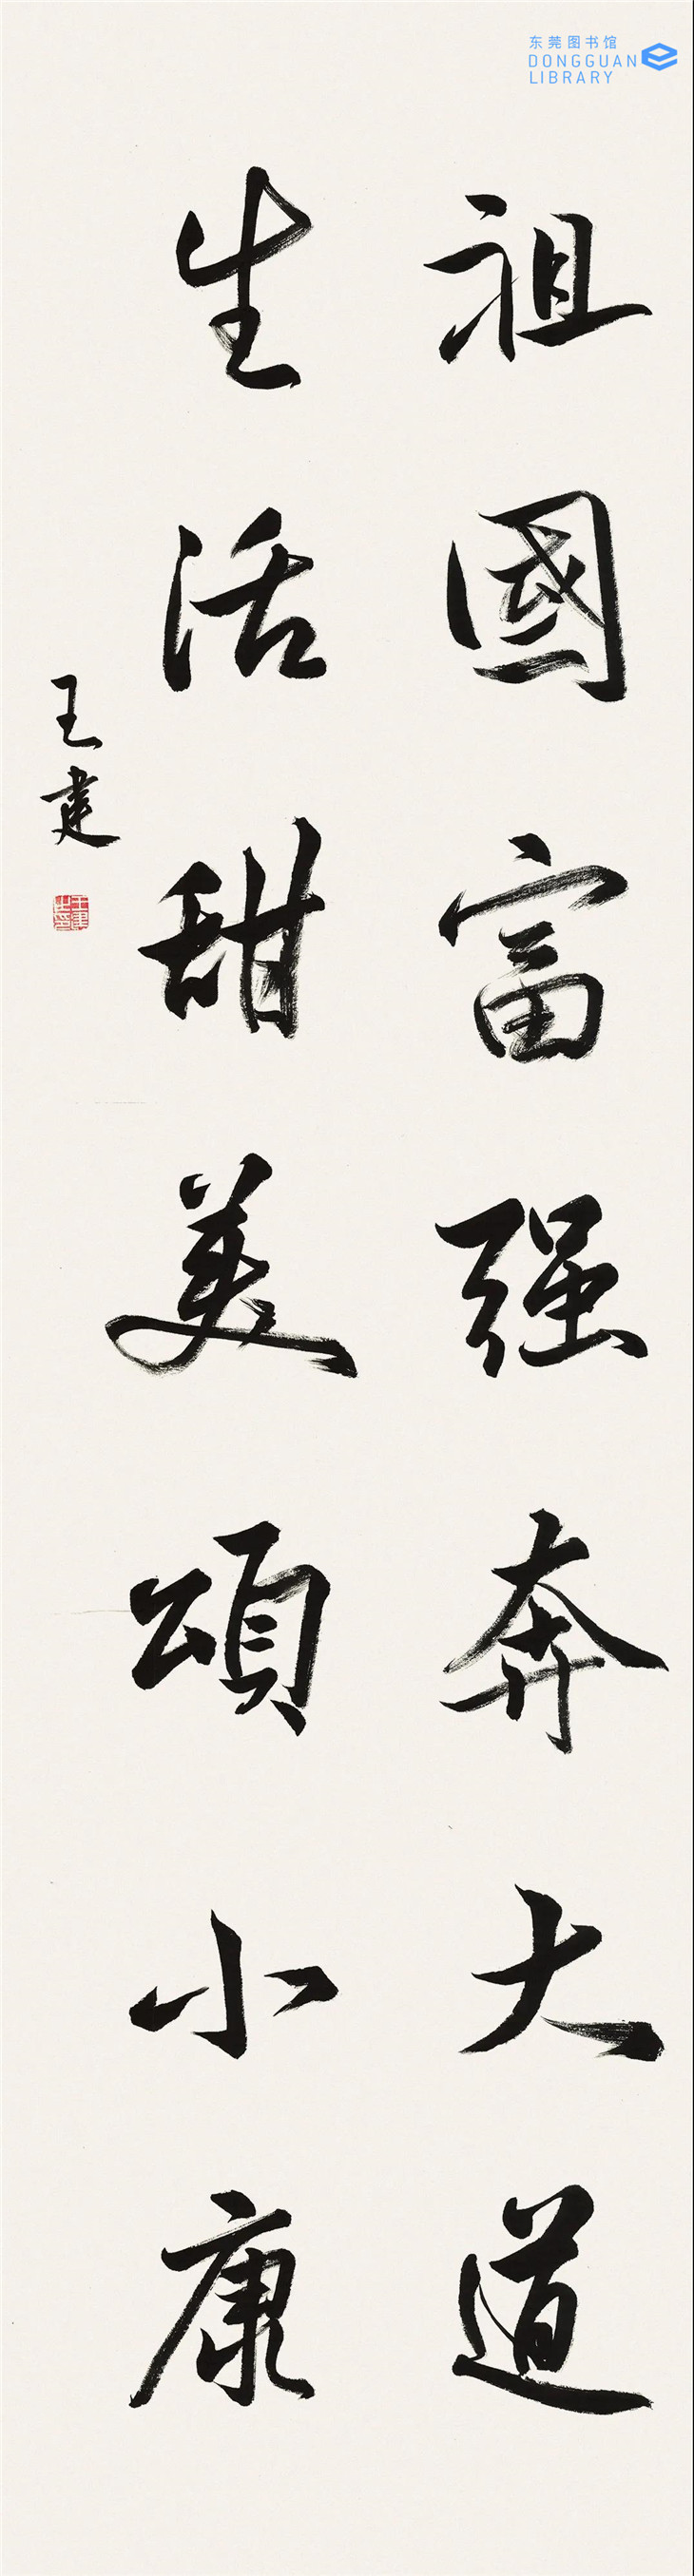 东莞图书馆
DONGGUAN
LIBRARY
祖國富强奔大道
生活甜美頌小康
王建
王建之印